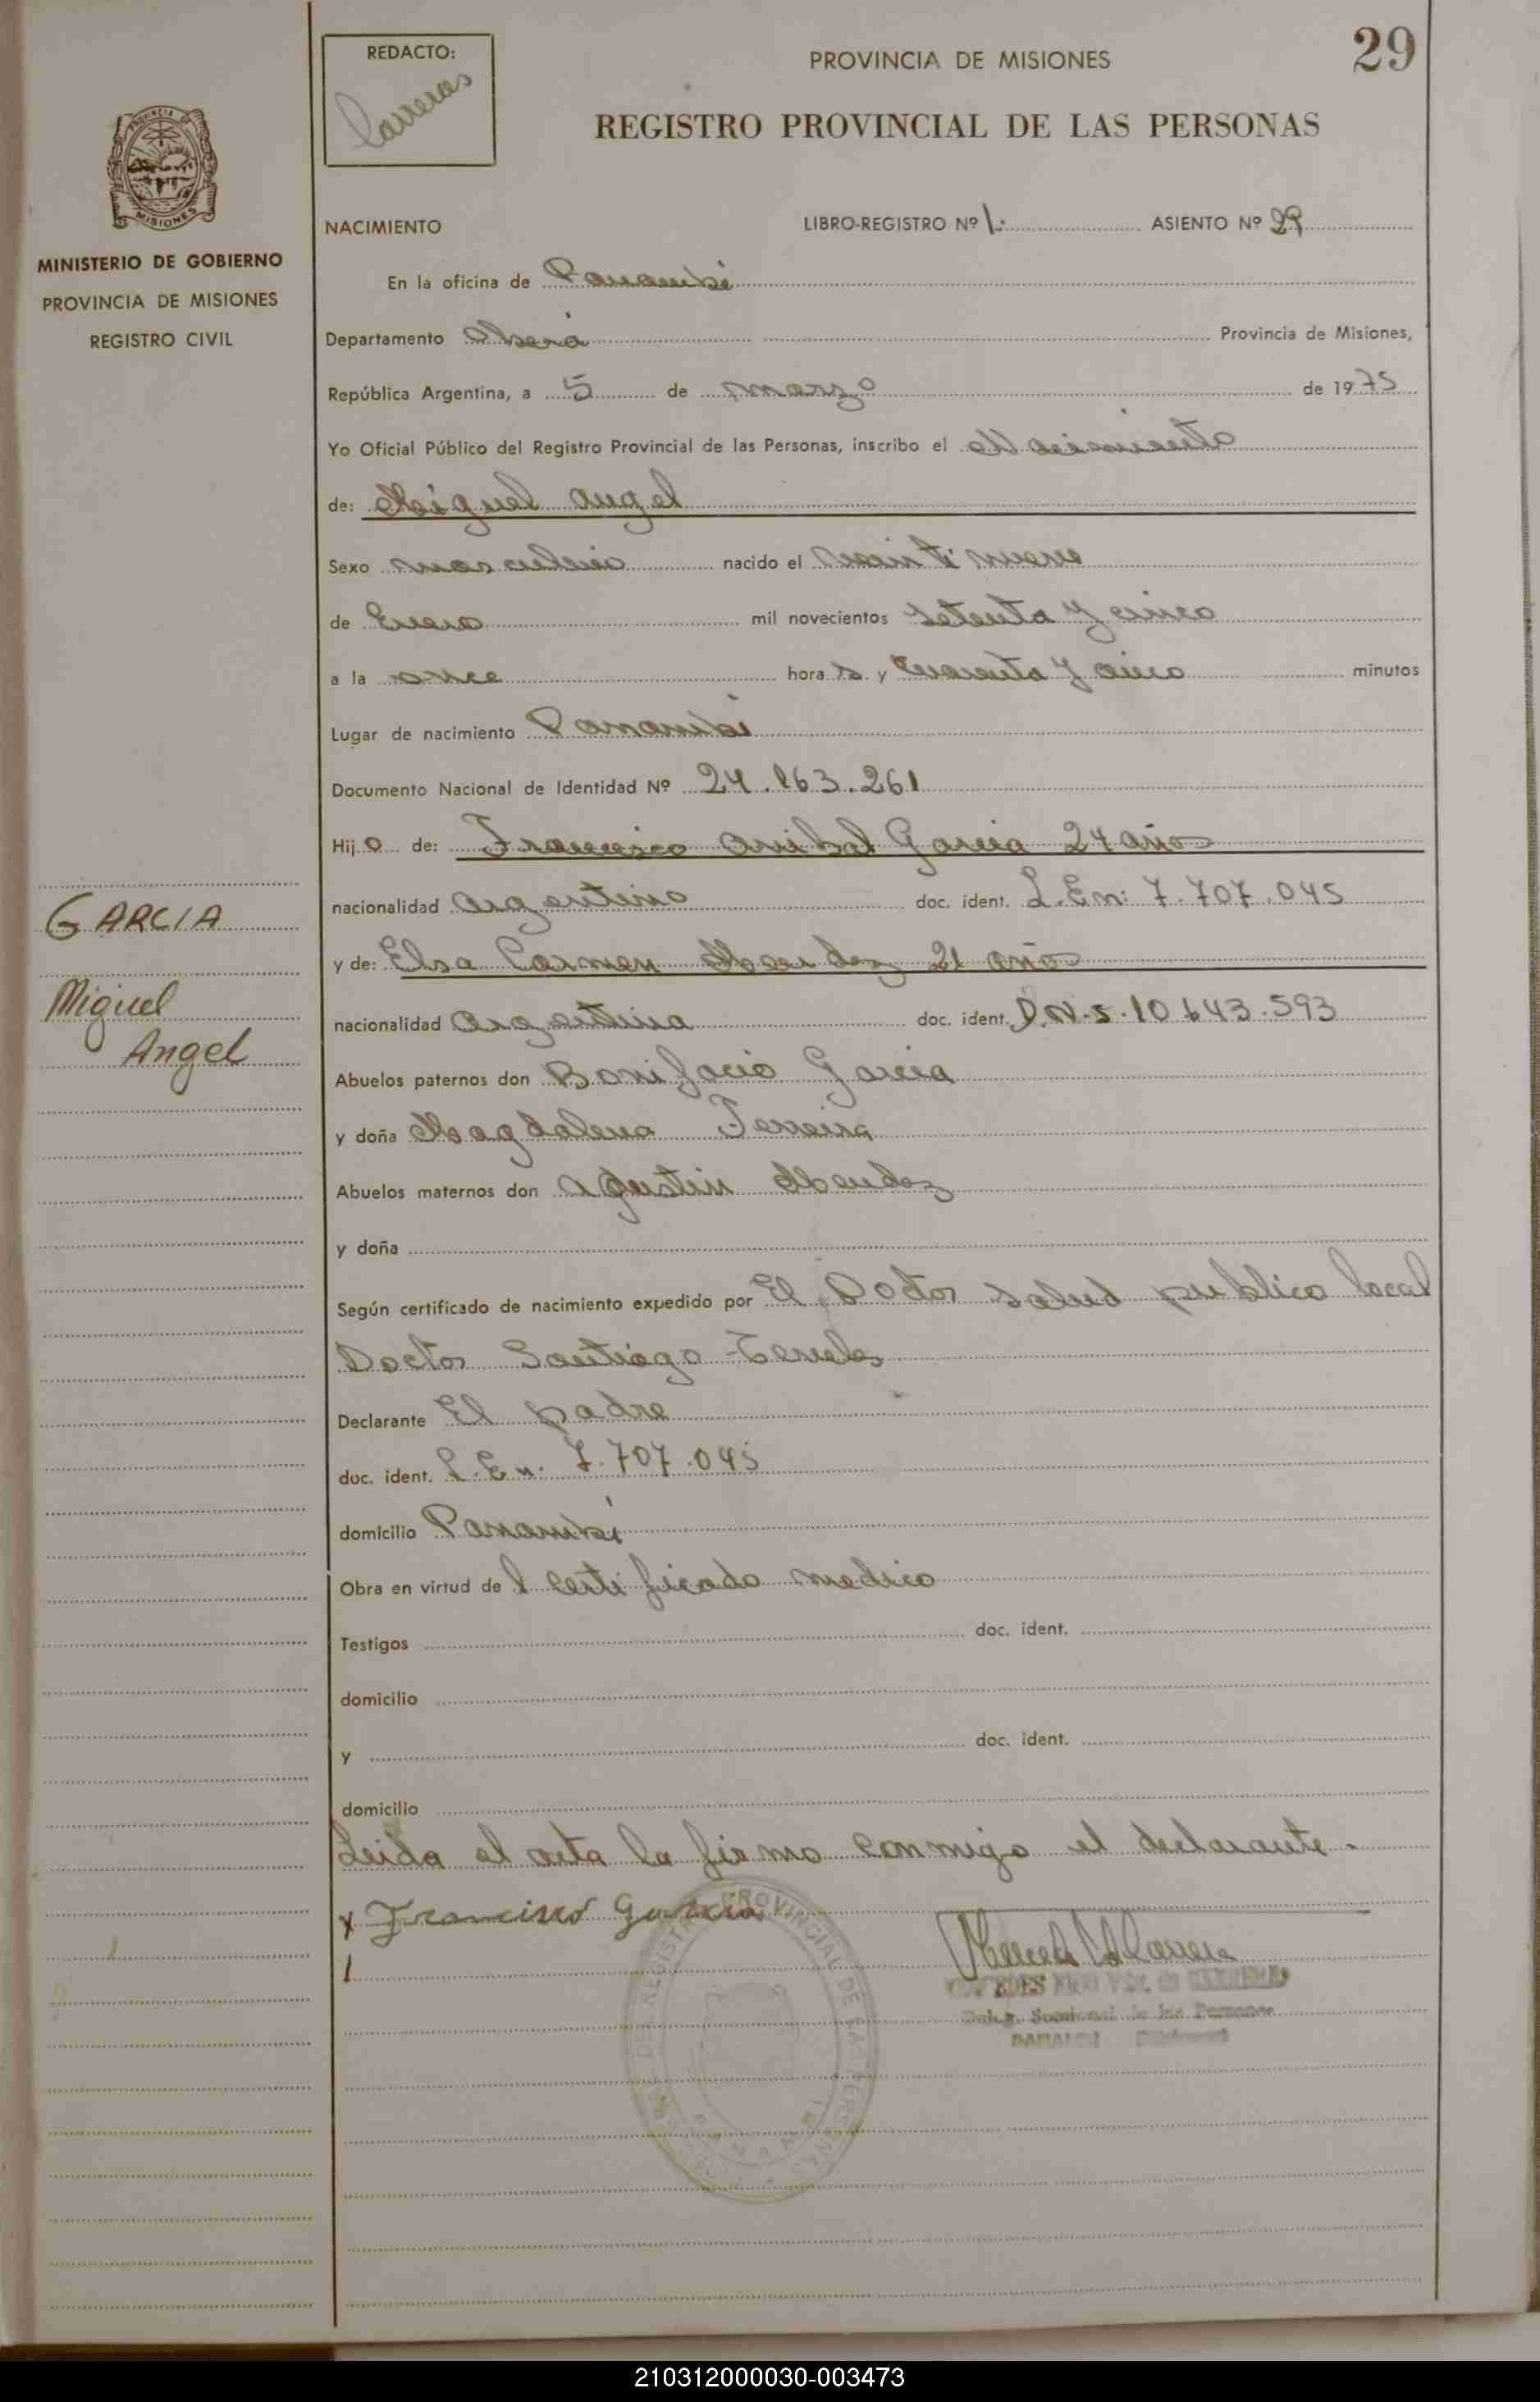 REDACTO:
Carreras
PROVINCIA DE MISIONES
29
REGISTRO PROVINCIAL DE LAS PERSONAS
PROVINCIA DE
MISIONES
MINISTERIO DE GOBIERNO
PROVINCIA DE MISIONES
REGISTRO CIVIL
NACIMIENTO LIBRO-REGISTRO Nº 1. ASIENTO Nº 29
En la oficina de Panambí
Departamento Oberá Provincia de Misiones,
República Argentina, a 5 de marzo de 1975
Yo Oficial Público del Registro Provincial de las Personas, inscribo el Nacimiento
de: Miguel Angel
Sexo masculino nacido el veintinueve
de Enero mil novecientos setenta y cinco
a la once horas y cuarenta y cinco minutos
Lugar de nacimiento Panambí
Documento Nacional de Identidad Nº 24.163.261
Hijo de: Francisco Anibal Garcia 24 años
nacionalidad argentino doc. ident. L.En: 7.707.045
y de: Elsa Carmen Mendez 21 años
nacionalidad argentina doc. ident. D.N.I. 10643.593
Abuelos paternos don Bonifacio Garcia
y doña Magdalena Ferreira
Abuelos maternos don Agustin Mendez
y doña
Según certificado de nacimiento expedido por El Doctor salud publico local
Doctor Santiago
Declarante El padre
doc. ident. L.En. 7.707.045
domicilio Panambí
Obra en virtud del certificado medico
Testigos doc. ident.
domicilio
y doc. ident.
domicilio
Leida el acta la firmo conmigo el declarante.
x Francisco Garcia
GARCIA
Miguel
Angel
REGISTRO PROVINCIAL DE LAS PERSONAS
PANAMBI
210312000030-003473